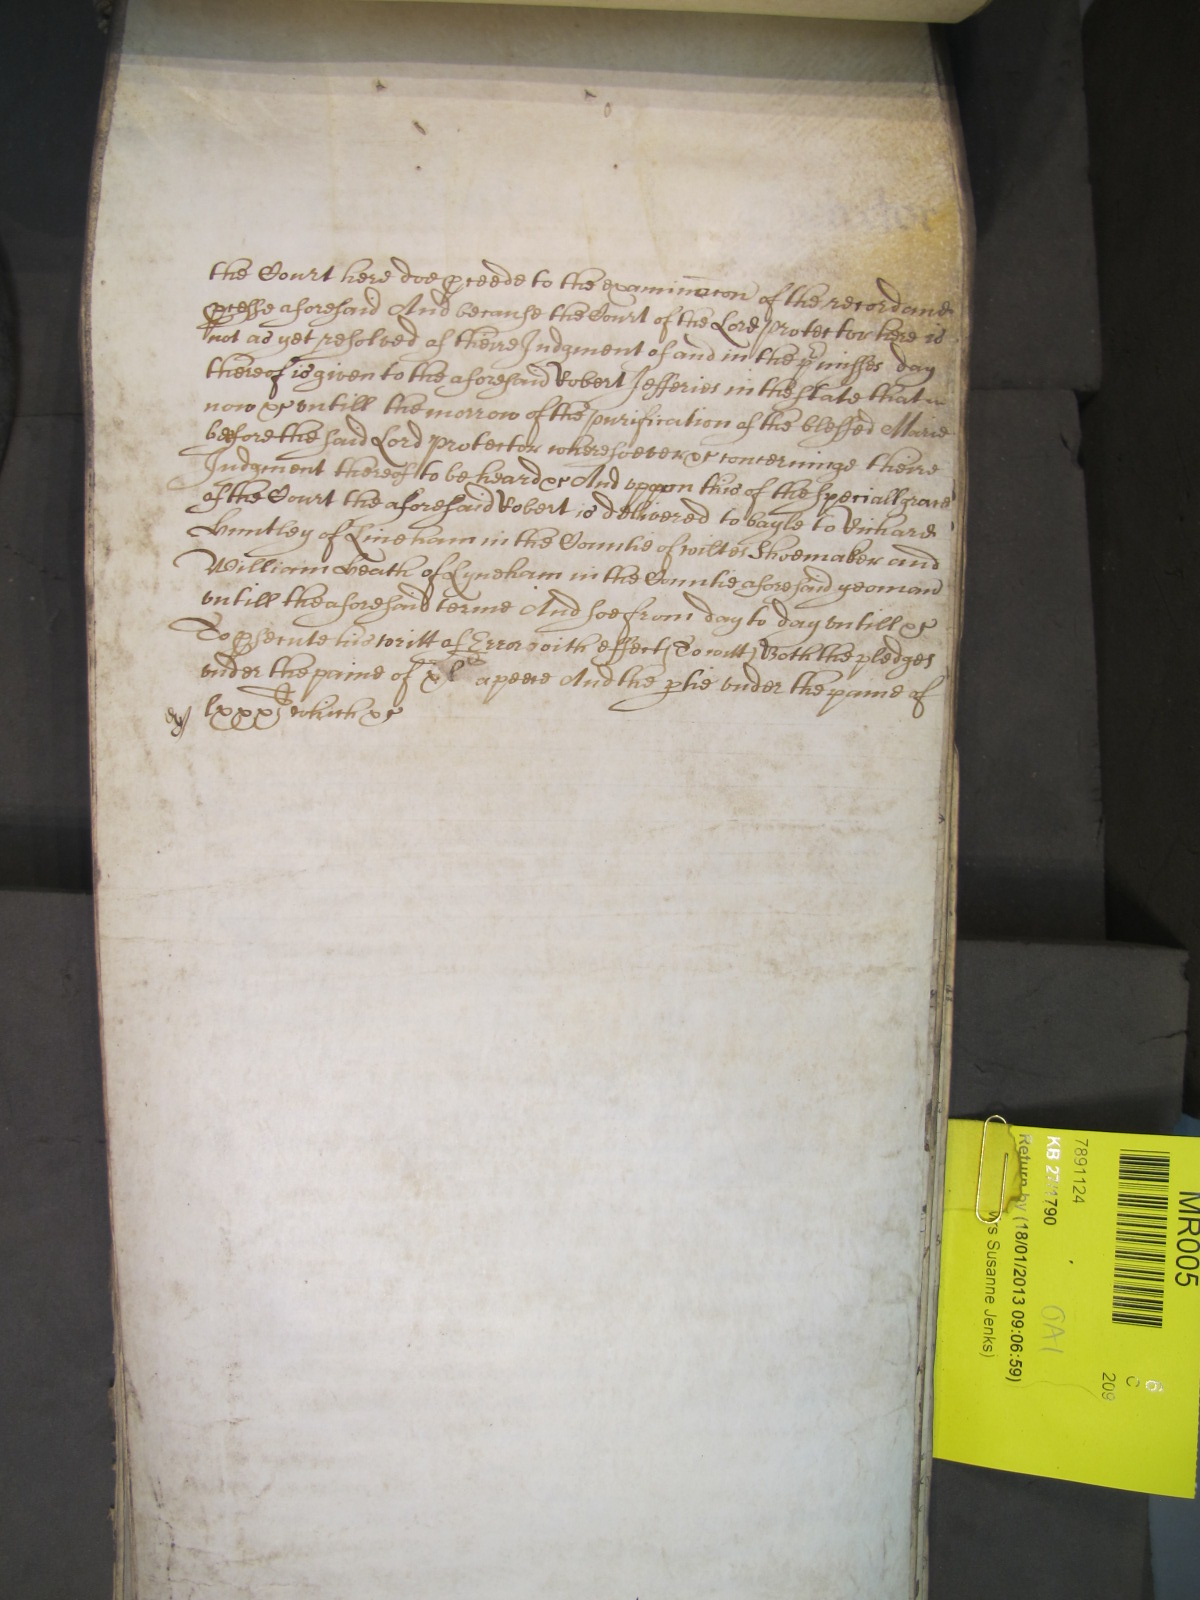 the Court here doe pceede to the examinacon of the record and
pcesse aforesaid And because the Court of the Lord protector here is
not as yet resolved of theire Judgment of and in the pmisses day
thereof is given to the aforesaid Robert Jefferies in the state that
now &c untill the morrow of the purification of the blessed Marie
before the said Lord protector wheresoever &c concerninge theire
Judgment thereof to be heard &c And uppon this of the speciall grace
of the Court the aforesaid Robert is delivered to bayle to Richard
Huntley of Lineham in the Countie of wiltes Shoemaker and
William Heath of Lyneham in the Countie aforesaid yeoman
untill the aforesaid terme And soe from day to day untill &c
To psecute his writt of Error with effect (To witt) Both the pledges
under the paine of xl li apeece And the ptie under the paine of
lxxx li which &c
MR005
6
C
209
7891124
0A1
KB 27/1790
Return by (18/01/2013 09:06:59)
Susanne Jenks)